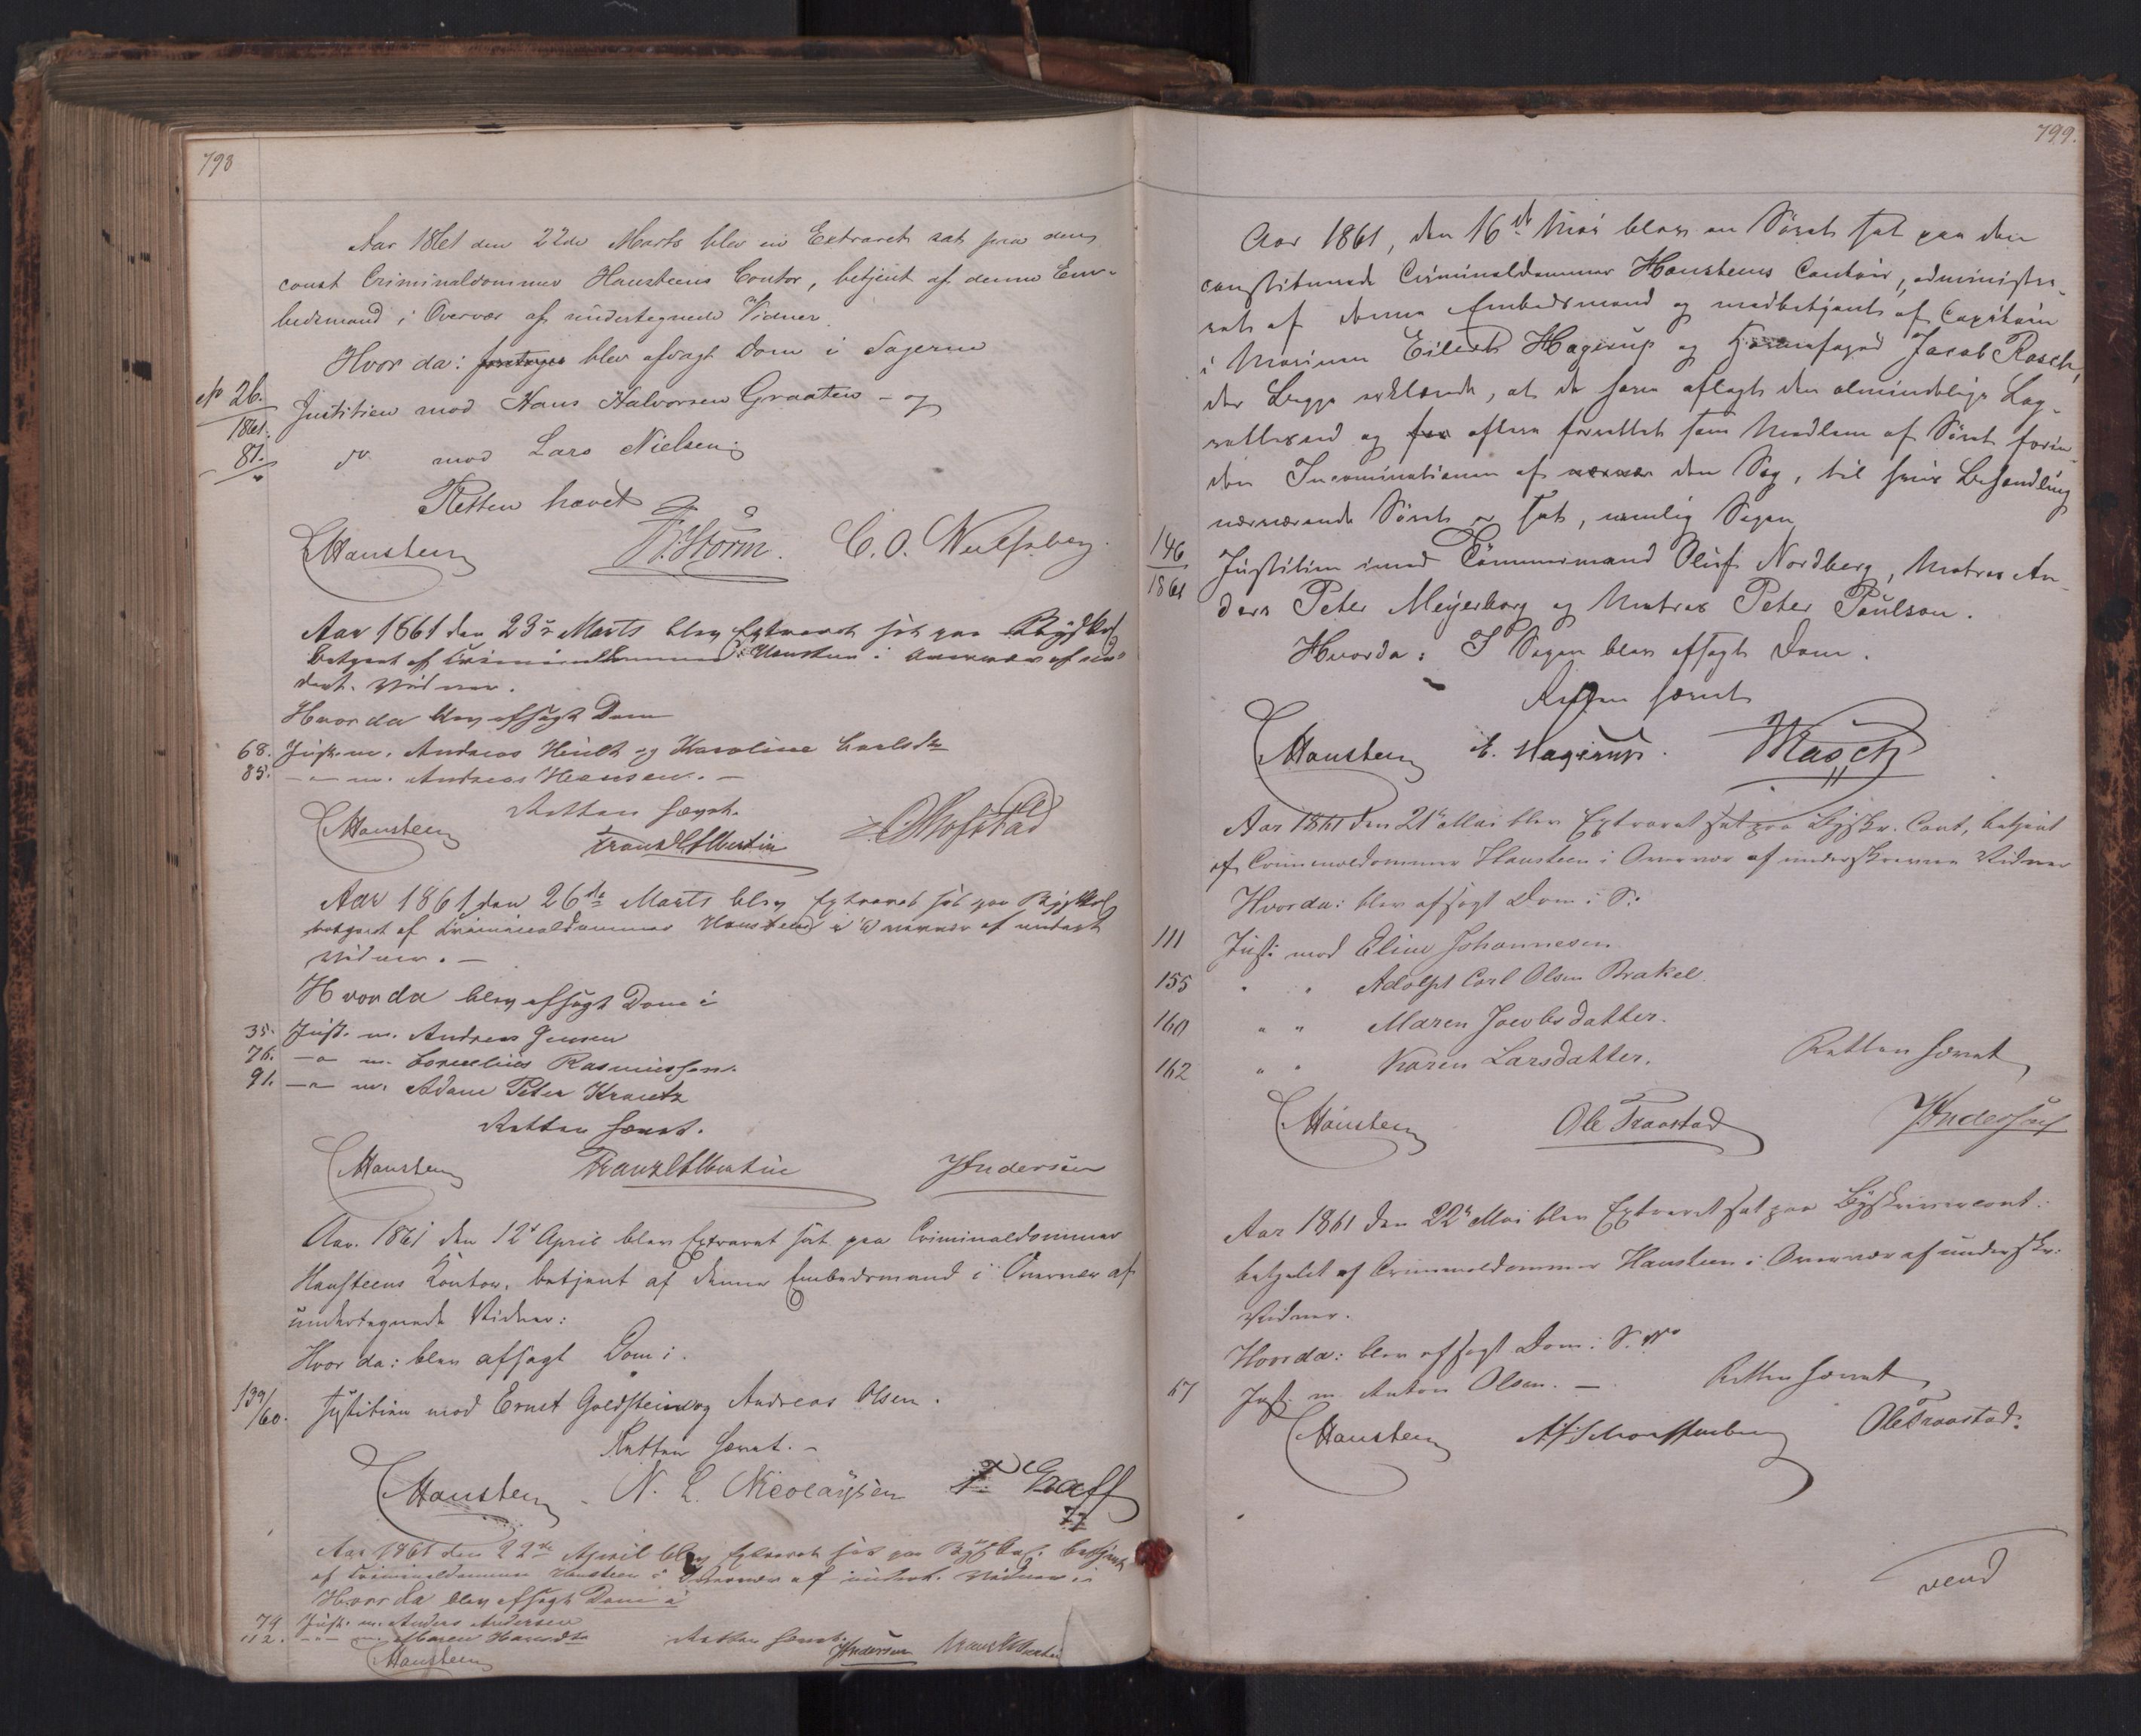 798
Aar 1861 den 22de Marts blev en Extraret sat paa den
const Criminaldommer Hansteens Contor, betjent af denne Em-
bedsmand i Overvær af undertegnede Vidner
Hvor da: foretoges blev afsagt Dom i Sagerne
No 26. Justitien mod Hans Halvorsen Graaten - og
1861.
87. do mod Lars Nielsen
Retten hævet
CHansteen Storm. C. O. Wulfsberg.
Aar 1861 den 23de Marts blev Extraret sat paa Bysk
betjent af Criminaldommer Hansteen i Overvær af un-
dert. Vidner.
Hvor da blev afsagt Dom
68. Just. m. Andreas Hindt og Karoline Carlsdtr
85. — " — m. Andreas Hansen. —
Retten hævet.
CHansteen Franz Albertin Hofstad
Aar 1861 den 26de Marts blev Extraret sat paa Byskr
betjent af Criminaldommer Hansteen i Overvær af undert
Vidner. —
Hvor da blev afsagt Dom i
35. Just. m. Andreas Jensen
76. — " — m. Cornelius Rasmussen.
91. — " — m. Adam Peter Krantz
Retten hævet.
CHansteen Franz Albertin JAndersen
Aar 1861 den 12te April blev Extraret sat paa Criminaldommer
Hansteens Kontor, betjent af denne Embedsmand i Overvær af
undertegnede Vidner:
Hvor da: blev afsagt Dom i.
139/60. Justitien mod Ernst Goldstein og Andreas Olsen.
Retten hævet. -
CHansteen N. L. Nicolaÿsen F. Graff
Aar 1861 den 22de April blev Extraret sat paa Byskr. betjent
af Criminaldommer Hansteen i Overvær af undert. Vidner
Hvor da blev afsagt Dom i
79 Just. m. Anders Andersen
112. — " — m. Maren Hansdtr Retten hævet.
CHansteen JAndersen Franz Albertin
799.
Aar 1861, den 16de Mai blev en Søret sat paa den
constituerede Criminaldommer Hansteens Contoir, administre-
ret af denne Embedsmand og medbetjent af Capitain
i Marinen Eilert Hagerup og Jacob Rasch,
der Begge erklærede, at de have aflagt den almindelige Lag-
rettesed og ere oftere forrettet som Medlem af Søret foruden
den af den Sag, til hvis Behandling
nærværende Søret er sat, nemlig Sagen
146 Justitien imod Tömmermand Oluf Nordberg, Matros An-
1861
ders Peter Meÿerborg og Matros Peter Poulson.
Hvorda: I Sagen blev afsagt Dom.
Retten hævet
CHansteen E. Hagerup. JRasch
Aar 1861 den 21de Mai blev Extraret sat paa Byskr. Cont, betjent
af Criminaldommer Hansteen i Overvær af underskrevne Vidner
Hvorda: blev afsagt Dom i S:
111 Just. mod Eline Johannesen
155 " " Adolph Carl Olsen Brakel.
160 " " Maren Jacobsdatter.
162 " " Karen Larsdatter. Retten hævet
CHansteen Ole Traastad JAndersen
Aar 1861 den 22de Mai blev Extraret sat paa Byskrivercont:
betjent af Criminaldommer Hansteen i Overvær af underskr:
Vidner.
Hvorda: blev afsagt Dom i S. No
67 Just. m. Anton Olsen. — Retten hævet
CHansteen Ole Traastad.
vend